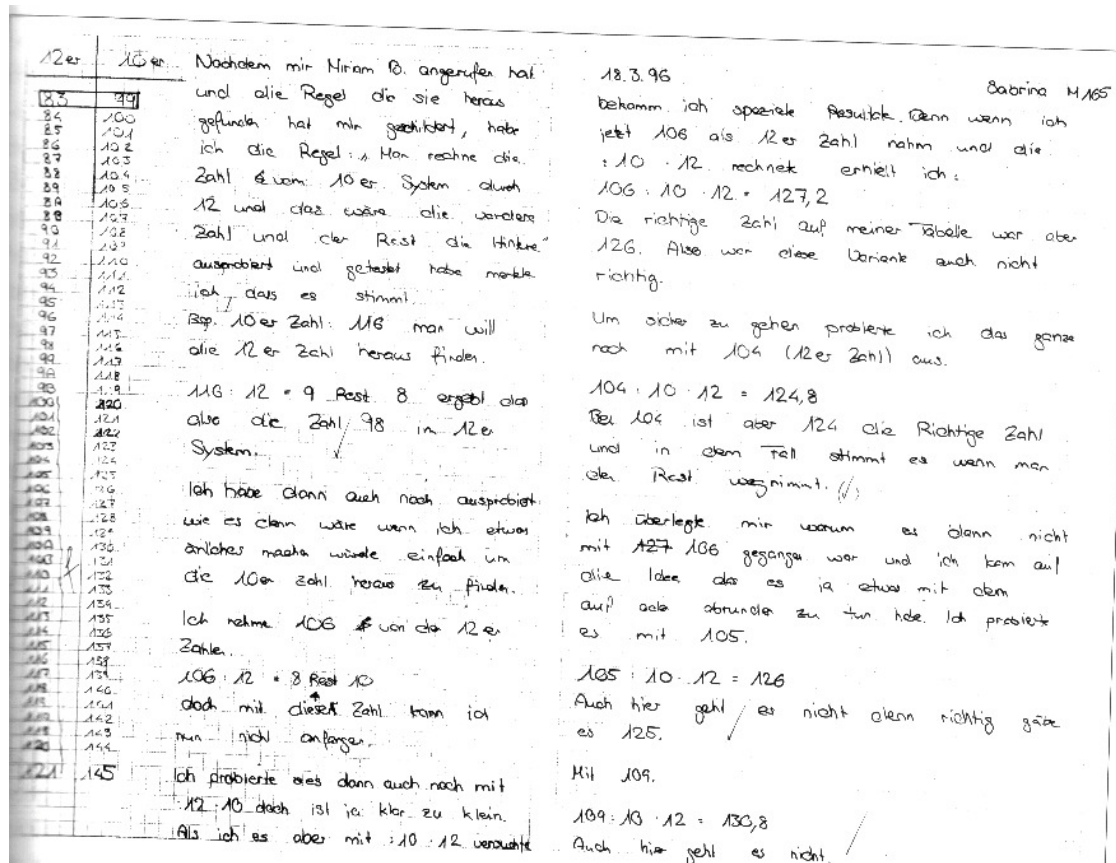 12er 10er
83 99
84 100
85 101
86 102
87 103
88 104
89 105
8A 106
8B 107
90 108
91 109
92 110
93 111
94 112
95 113
96 114
97 115
98 116
99 117
9A 118
9B 119
100 120
101 121
102 122
103 123
104 124
105 125
106 126
107 127
108 128
109 129
10A 130
10B 131
110 132
111 133
112 134
113 135
114 136
115 137
116 138
117 139
118 140
119 141
11A 142
11B 143
120 144
121 145
Nachdem mir Miriam B. angerufen hat
und die Regel die sie heraus
gefunden hat mir geschildert, habe
ich die Regel: „Man rechne die
Zahl vom 10er System durch
12 und das wäre die vordere
Zahl und der Rest die Hintere"
ausprobiert und getestet habe merkte
ich, dass es stimmt
Bsp. 10er Zahl: 116 man will
die 12er Zahl heraus finden.
116 : 12 = 9 Rest 8 ergebt das
also die Zahl 98 im 12er
System.
Ich habe dann auch noch ausprobiert
wie es denn wäre wenn ich etwas
änliches machen würde einfach um
die 10er Zahl heraus zu finden.
Ich nehme 106 von der 12er
Zahlen.
106 : 12 = 8 Rest 10
doch mit dieser Zahl kann ich
nun nicht anfangen.
Ich probierte es dann auch noch mit
:12 :10 doch ist ja klar zu klein.
Als ich es aber mit :10 · 12 versuchte
18.3.96
Sabrina M165
bekamm ich spezielle Resultate. Denn wenn ich
jetzt 106 als 12er Zahl nahm und die
: 10 · 12 rechnete erhielt ich:
106 : 10 · 12 = 127,2
Die richtige Zahl auf meiner Tabelle war aber
126. Also war diese Variante auch nicht
richtig.
Um sicher zu gehen probierte ich das ganze
noch mit 104 (12er Zahl) aus.
104 : 10 · 12 = 124,8
Bei 104 ist aber 124 die Richtige Zahl
und in dem Fall stimmt es wenn man
den Rest wegnimmt. (√)
Ich überlegte mir warum es dann nicht
mit 127 106 gegangen war und ich kam auf
die Idee das es ja etwas mit dem
auf oder abrunden zu tun habe. Ich probierte
es mit 105.
105 : 10 · 12 = 126
Auch hier geht es nicht denn richtig gäbe
es 125.
Mit 109.
109 : 10 · 12 = 130,8
Auch hier geht es nicht.